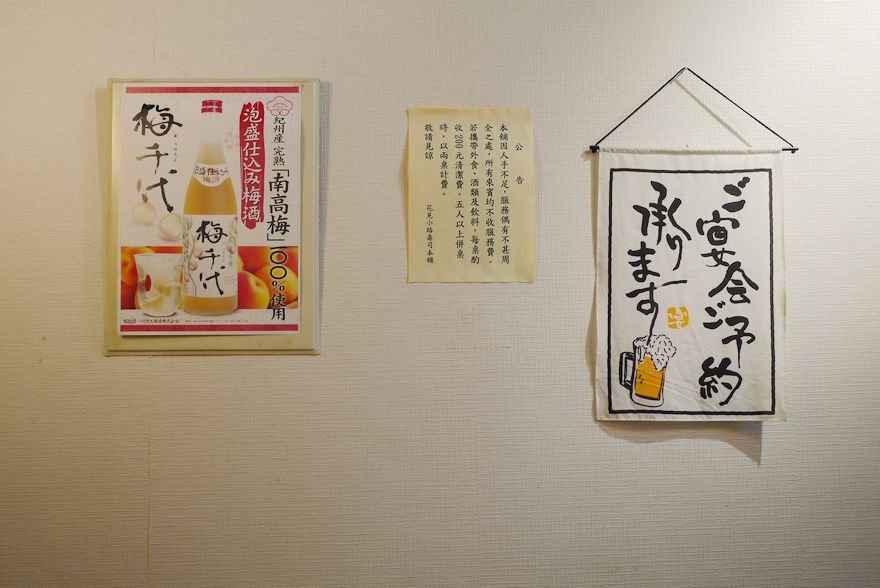 梅千代
うめちよ
紀州産 完熟「南高梅」一〇〇%使用
泡盛仕込み梅酒
泡盛仕込み
梅酒
梅千代
公告
本舖因人手不足，服務偶有不甚周
全之處，所有來賓均不收服務費。
若攜帶外食、酒類及飲料，每桌酌
收200元清潔費。五人以上併桌
時，以兩桌計費。
敬請見諒
花見小路壽司本舖
ご宴会ご予約
承ります